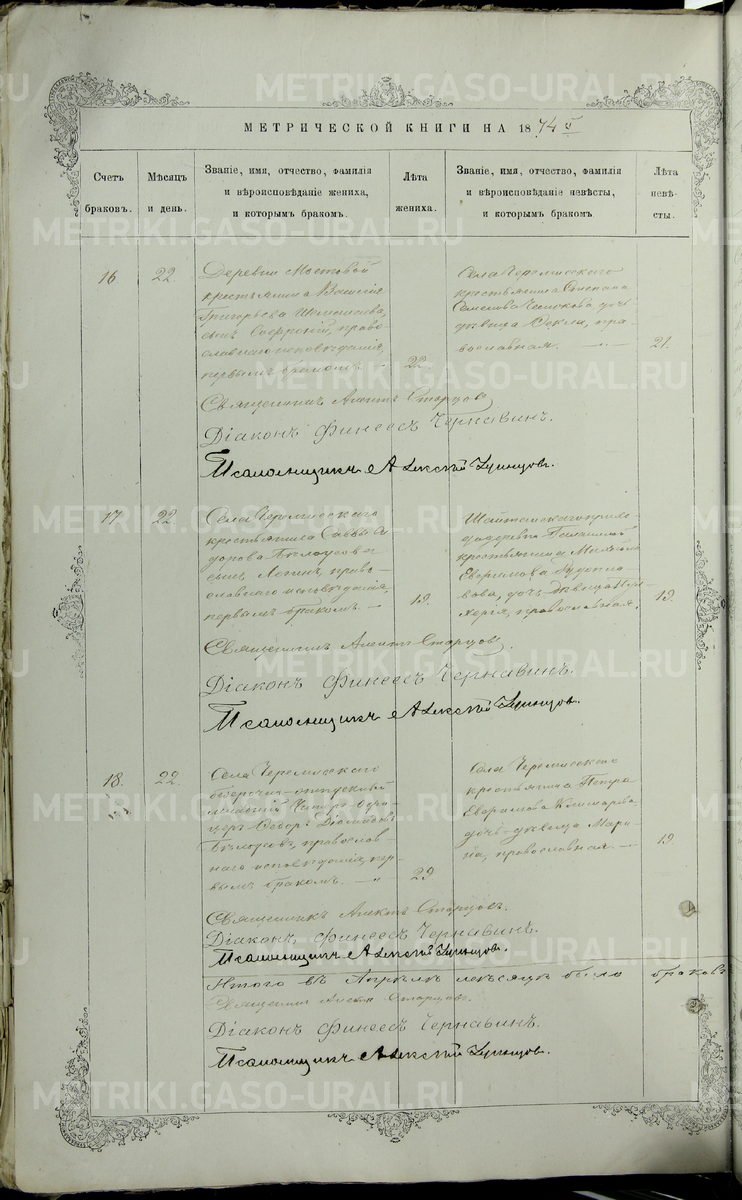 МЕТРИЧЕСКОЙ КНИГИ НА 1874
Счетъ браковъ.
Мѣсяцъ и день.
Званіе, имя, отчество, фамилія
и вѣроисповѣданіе жениха,
и которымъ бракомъ.
Лѣта жениха.
Званіе, имя, отчество, фамилія
и вѣроисповѣданіе невѣсты,
и которымъ бракомъ
Лѣта невѣсты.
16
22
Деревни Мостовой
крестьянина Василія
Григорьева
сынъ Софроній, право-
славнаго исповѣданія,
первымъ бракомъ.
22.
Села Черемисскаго
крестьянина Степана
дочь
дѣвица Ѳекла, пра-
вославная.
21.
Священникъ Старцовъ
Діаконъ Финеесъ Чернавинъ.
Псаломщикъ Алексѣй
17.
22
Села Черемисскаго
крестьянина Саввы
дорова Бѣлоусова
сынъ Логинъ, право-
славнаго исповѣданія,
первымъ бракомъ. —
19.
Шайтанскаго прихо-
да деревни
крестьянина
Евфимова
дочь дѣвица
православная.
19.
Священникъ Старцовъ.
Діаконъ Финеесъ Чернавинъ.
Псаломщикъ Алексѣй
18.
22.
Села Черемисскаго
безсрочно-отпускный
Унтеръ-Офи-
церъ Ѳедоръ Діомидовъ
Бѣлоусовъ, православ-
наго исповѣданія, пер-
вымъ бракомъ. —
29
Села Черемисскаго
крестьянина Петра
Евфимова
дочь дѣвица Мари-
на, православная. —
19.
Священникъ Старцовъ.
Діаконъ Финеесъ Чернавинъ.
Псаломщикъ Алексѣй
Итого въ Апрѣлѣ мѣсяцѣ было браковъ
Священникъ Старцовъ.
Діаконъ Финеесъ Чернавинъ.
Псаломщикъ Алексѣй
METRIKI.GASO-URAL.RU